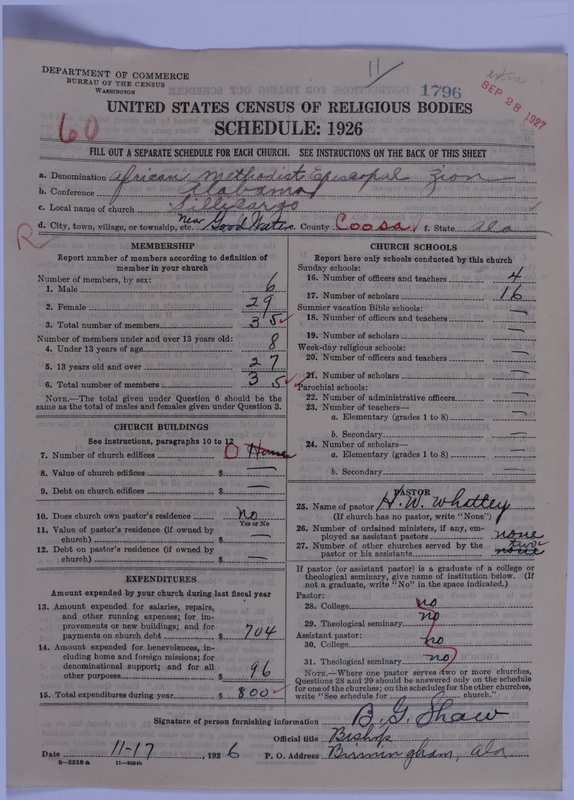 11
DEPARTMENT OF COMMERCE
BUREAU OF THE CENSUS
WASHINGTON
1796
extra
SEP 28 1927
UNITED STATES CENSUS OF RELIGIOUS BODIES
60
SCHEDULE: 1926
FILL OUT A SEPARATE SCHEDULE FOR EACH CHURCH. SEE INSTRUCTIONS ON THE BACK OF THIS SHEET
a. Denomination African Methodist Episcopal Zion
b. Conference Alabama
c. Local name of church
d. City, town, village, or township, etc. Near Good Water e. County Coosa f. State Ala
R
MEMBERSHIP
Report number of members according to definition of member in your church
Number of members, by sex:
1. Male 6
2. Female 29
3. Total number of members 35
Number of members under and over 13 years old:
4. Under 13 years of age 8
5. 13 years old and over 27
6. Total number of members 35
NOTE.—The total given under Question 6 should be the
same as the total of males and females given under Question 3.
CHURCH BUILDINGS
See instructions, paragraphs 10 to 12
7. Number of church edifices 0 None
8. Value of church edifices $ —
9. Debt on church edifices $ —
10. Does church own pastor's residence No
Yes or No
11. Value of pastor's residence (if owned by
church) $ —
12. Debt on pastor's residence (if owned by
church) $
EXPENDITURES
Amount expended by your church during last fiscal year
13. Amount expended for salaries, repairs,
and other running expenses; for im-
provements or new buildings; and for
payments on church debt $ 704
14. Amount expended for benevolences, in-
cluding home and foreign missions; for
denominational support; and for all
other purposes $ 96
15. Total expenditures during year $ 800
CHURCH SCHOOLS
Report here only schools conducted by this church
Sunday schools:
16. Number of officers and teachers 4
17. Number of scholars 16
Summer vacation Bible schools:
18. Number of officers and teachers —
19. Number of scholars —
Week-day religious schools:
20. Number of officers and teachers —
21. Number of scholars —
Parochial schools:
22. Number of administrative officers —
23. Number of teachers—
a. Elementary (grades 1 to 8) —
b. Secondary —
24. Number of scholars—
a. Elementary (grades 1 to 8) —
b. Secondary —
PASTOR
25. Name of pastor H. W. Whatley
(If church has no pastor, write "None")
26. Number of ordained ministers, if any, em-
ployed as assistant pastors none
27. Number of other churches served by the two
pastor or his assistants none
If pastor (or assistant pastor) is a graduate of a college or
theological seminary, give name of institution below. (If
not a graduate, write "No" in the space indicated.)
Pastor:
28. College no
29. Theological seminary no
Assistant pastor:
30. College no
31. Theological seminary no
NOTE.—Where one pastor serves two or more churches,
Questions 28 and 29 should be answered only on the schedule
for one of the churches; on the schedules for the other churches,
write "See schedule for church."
Signature of person furnishing information B. G. Shaw
Official title Bishop
Date 11-17, 1926 P. O. Address Birmingham, Ala